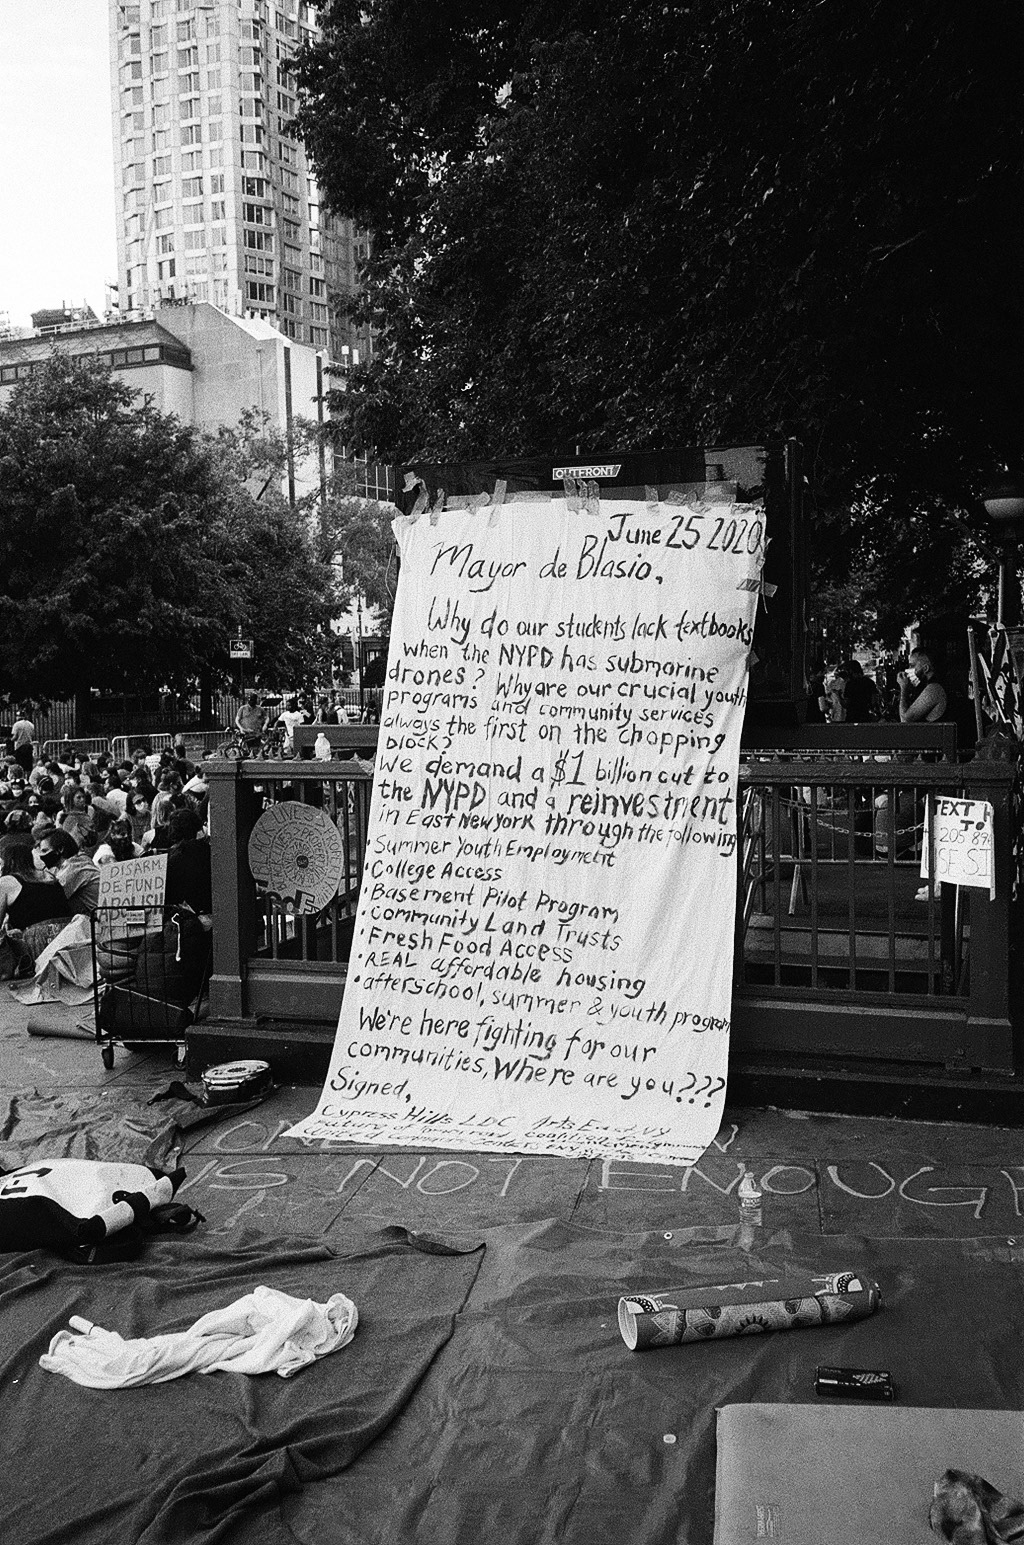 OUTFRONT
June 25 2020
Mayor de Blasio,
Why do our students lack textbooks
when the NYPD has submarine
drones? Why are our crucial youth
programs and community services
always the first on the chopping
block?
We demand a $1 billion cut to
the NYPD and a reinvestment
in East New York through the following
• Summer Youth Employment
• College Access
• Basement Pilot Program
• Community Land Trusts
• Fresh Food Access
• REAL affordable housing
• afterschool, summer & youth program
We're here fighting for our
communities, Where are you???
Signed,
Cypress Hills LDC Arts East NY
DISARM
DEFUND
ABOLISH
TEXT
TO
205 89
IS NOT ENOUGH